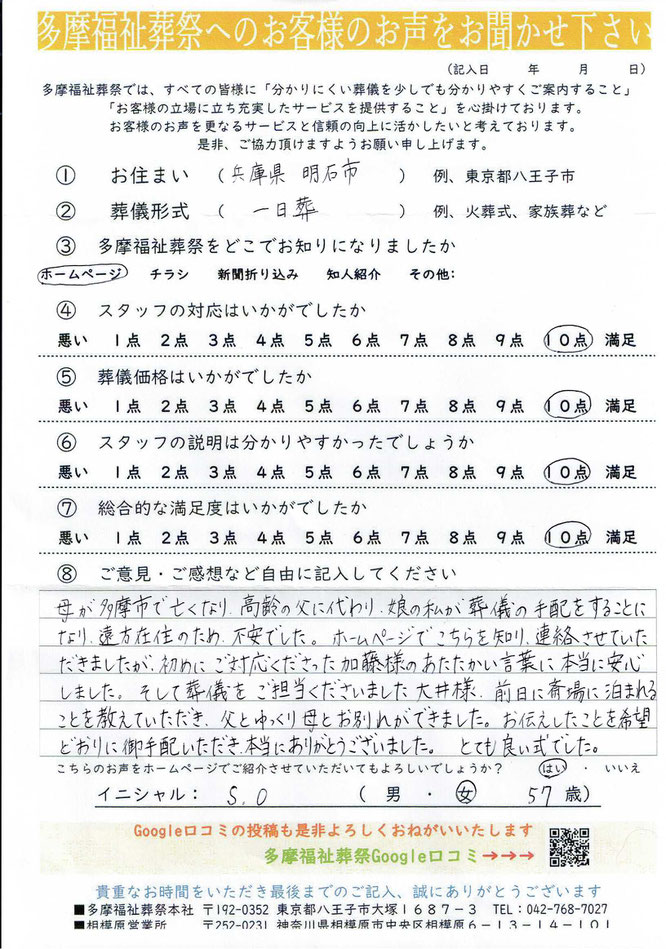 多摩福祉葬祭へのお客様のお声をお聞かせ下さい
(記入日　　年　　月　　日)
多摩福祉葬祭では、すべての皆様に「分かりにくい葬儀を少しでも分かりやすくご案内すること」
「お客様の立場に立ち充実したサービスを提供すること」を心掛けております。
お客様のお声を更なるサービスと信頼の向上に活かしたいと考えております。
是非、ご協力頂けますようお願い申し上げます。
① お住まい （兵庫県 明石市　） 例、東京都八王子市
② 葬儀形式 （　一日葬　） 例、火葬式、家族葬など
③ 多摩福祉葬祭をどこでお知りになりましたか
ホームページ　チラシ　新聞折り込み　知人紹介　その他：
④ スタッフの対応はいかがでしたか
悪い 1点 2点 3点 4点 5点 6点 7点 8点 9点 10点 満足
⑤ 葬儀価格はいかがでしたか
悪い 1点 2点 3点 4点 5点 6点 7点 8点 9点 10点 満足
⑥ スタッフの説明は分かりやすかったでしょうか
悪い 1点 2点 3点 4点 5点 6点 7点 8点 9点 10点 満足
⑦ 総合的な満足度はいかがでしたか
悪い 1点 2点 3点 4点 5点 6点 7点 8点 9点 10点 満足
⑧ ご意見・ご感想など自由に記入してください
母が多摩市で亡くなり、高齢の父に代わり、娘の私が葬儀の手配をすることに
なり、遠方在住のため、不安でした。ホームページでこちらを知り、連絡させていた
だきましたが、初めにご対応くださった加藤様のあたたかい言葉に本当に安心
しました。そして葬儀をご担当くださいました大井様、前日に斎場に泊まれる
ことを教えていただき、父とゆっくり母とお別れができました。お伝えしたことを希望
どおりに御手配いただき、本当にありがとうございました。とても良い式でした。
こちらのお声をホームページでご紹介させていただいてもよろしいでしょうか？　はい ・ いいえ
イニシャル： S.O （ 男 ・ 女　57 歳）
Google口コミの投稿も是非よろしくおねがいいたします
多摩福祉葬祭Google口コミ→→→
貴重なお時間をいただき最後までのご記入、誠にありがとうございます
■多摩福祉葬祭本社 〒192-0352 東京都八王子市大塚1687－3 TEL：042-768-7027
■相模原営業所 〒252-0231 神奈川県相模原市中央区相模原6－13－14－101